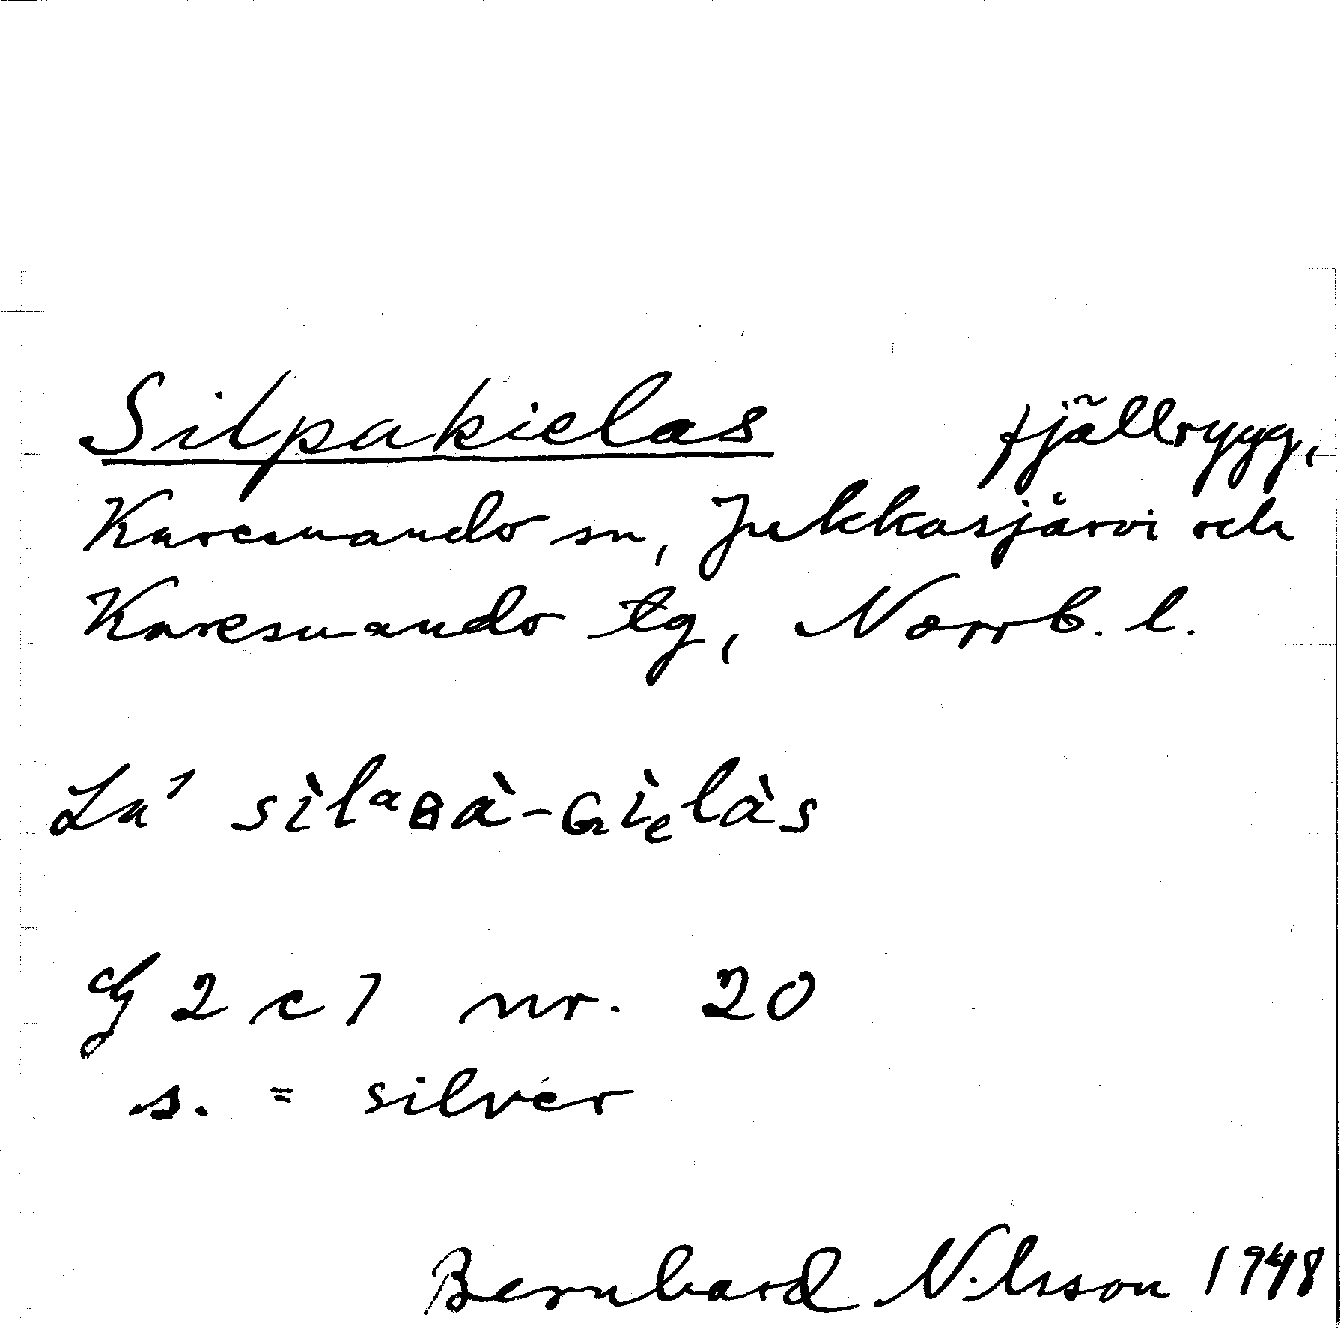 Silpakielas fjällrygg,
Karesuando sn, Jukkasjärvi och
Karesuando tg, Norrb. l.
La' sìlᵃʙà-ɢìₑlàs
G 2 c 7 nr. 20
s. = silver
Bernhard Nilsson 1948